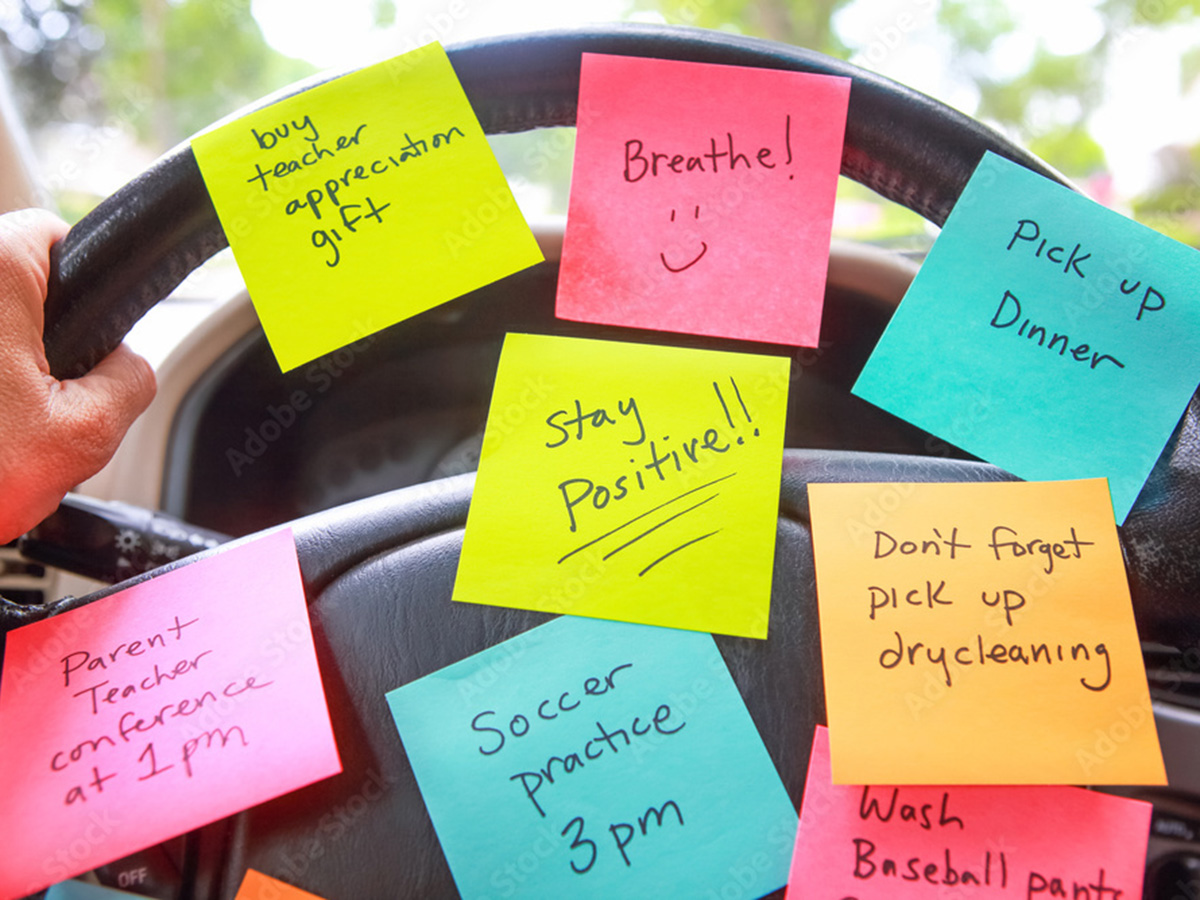 buy
teacher
appreciation
gift
Breathe!
Pick up
Dinner
Stay
Positive!!
Don't forget
pick up
drycleaning
Parent
Teacher
conference
at 1pm
Soccer
practice
3pm
Wash
Baseball pants
OFF
Adobe Stock